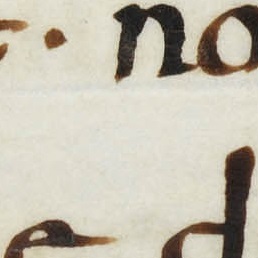 . no
e d